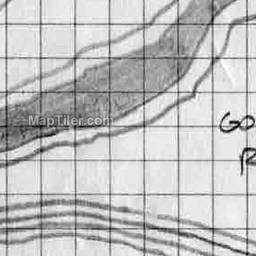 MapTiler.com
GO